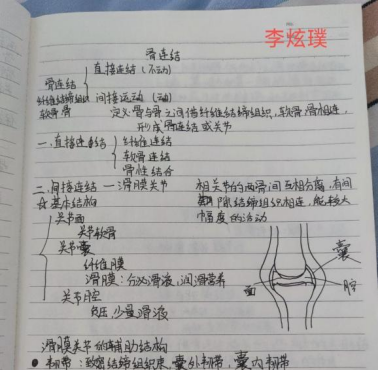 李炫璞
骨连结
直接连结（不动）
骨连结
纤维结缔组织 间接运动（动）
软骨 骨
定义骨与骨之间借纤维结缔组织，软骨 骨相连，
形成骨连结或关节
一、直接连结 纤维连结
软骨连结
骨性结合
二、间接连结 — 滑膜关节 相关节的两骨间互相分离，有间
基本结构 隙结缔组织相连，能较大
幅度的活动
关节面
关节软骨
关节囊
纤维膜
滑膜：分泌滑液，润滑营养
关节腔
负压，少量滑液
囊
面
腔
滑膜关节的辅助结构
韧带：致密结缔组织束，囊外韧带，囊内韧带